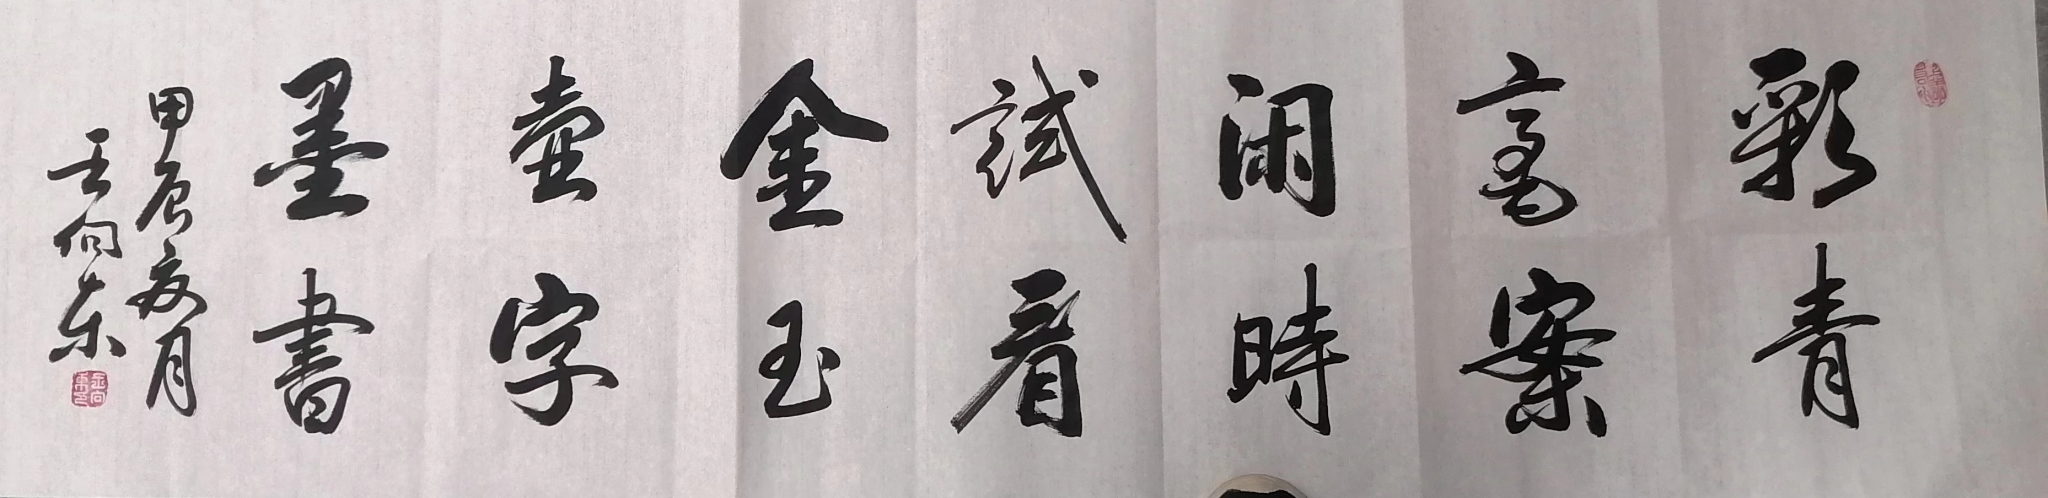 彩青
高案
闲時
試看
金玉
壶字
墨書
甲辰夏月
向东